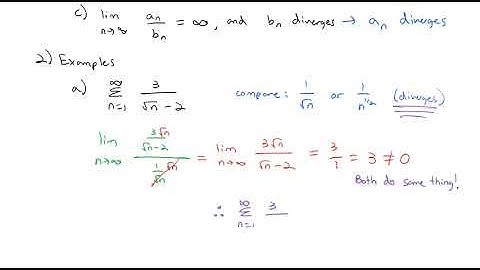 c) lim n→∞ a_n/b_n = ∞, and b_n diverges → a_n diverges
2) Examples
a) ∞ Σ n=1 3/(√n - 2) compare: 1/√n or 1/n^(1/2) (diverges)
lim n→∞ (3√n/(√n-2))/(1/√n √n) = lim n→∞ 3√n/(√n-2) = 3/1 = 3 ≠ 0
Both do same thing!
∴ ∞ Σ n=1 3/